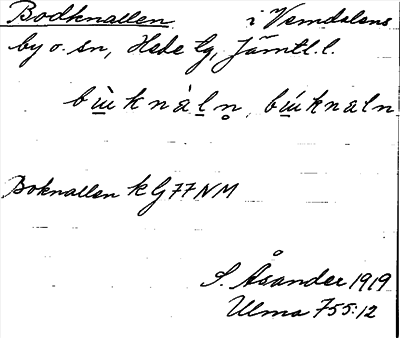 Bodknallen i Vemdalens
by o. sn, Hede tg, Jämtl. l.
bùknàln̥, búknaln
Boknallen k Lj 77 NM
S. Åsander 1919
Ulma 755:12